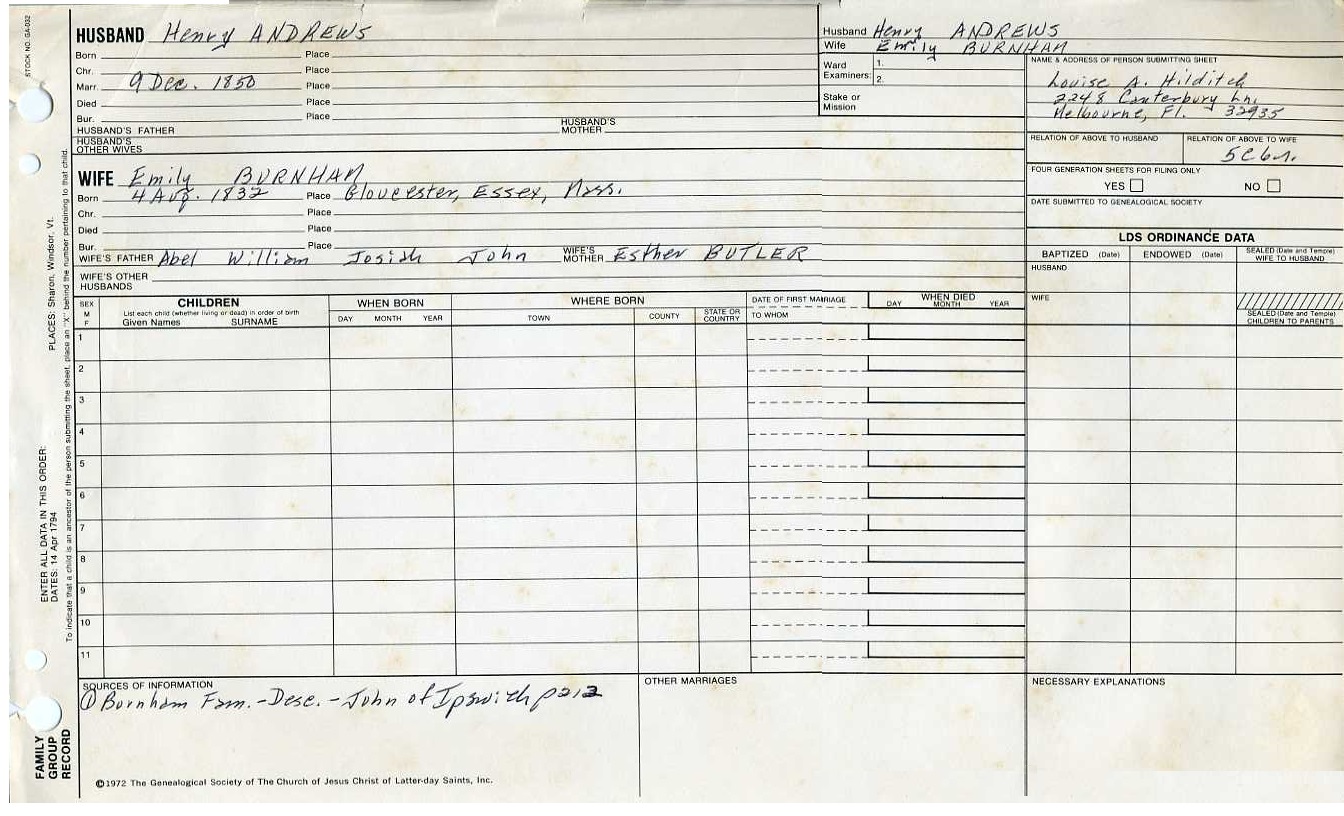 STOCK NO. GA-032
HUSBAND Henry ANDREWS
Born Place
Chr. Place
Marr. 9 Dec. 1850 Place
Died Place
Bur. Place
HUSBAND'S FATHER HUSBAND'S MOTHER
HUSBAND'S OTHER WIVES
Husband Henry ANDREWS
Wife Emily BURNHAM
Ward Examiners: 1.
2.
Stake or Mission
NAME & ADDRESS OF PERSON SUBMITTING SHEET
Louise A. Hilditch
2248 Canterbury Ln.
Melbourne, Fl. 32935
RELATION OF ABOVE TO HUSBAND
RELATION OF ABOVE TO WIFE
5C6r.
FOUR GENERATION SHEETS FOR FILING ONLY
YES NO
DATE SUBMITTED TO GENEALOGICAL SOCIETY
WIFE Emily BURNHAM
Born 4 Aug. 1832 Place Gloucester, Essex, Mass.
Chr. Place
Died Place
Bur. Place
WIFE'S FATHER Abel William Josiah John WIFE'S MOTHER Esther BUTLER
WIFE'S OTHER HUSBANDS
LDS ORDINANCE DATA
BAPTIZED (Date) ENDOWED (Date) SEALED (Date and Temple) WIFE TO HUSBAND
HUSBAND
WIFE
SEALED (Date and Temple) CHILDREN TO PARENTS
SEX M F
CHILDREN
List each child (whether living or dead) in order of birth
Given Names SURNAME
WHEN BORN
DAY MONTH YEAR
WHERE BORN
TOWN COUNTY STATE OR COUNTRY
DATE OF FIRST MARRIAGE
TO WHOM
WHEN DIED
DAY MONTH YEAR
1
2
3
4
5
6
7
8
9
10
11
SOURCES OF INFORMATION
① Burnham Fam. - Desc. - John of Ipswich p212
OTHER MARRIAGES
NECESSARY EXPLANATIONS
©1972 The Genealogical Society of The Church of Jesus Christ of Latter-day Saints, Inc.
FAMILY GROUP RECORD
ENTER ALL DATA IN THIS ORDER:
DATES: 14 Apr 1794
PLACES: Sharon, Windsor, Vt.
To indicate that a child is an ancestor of the person submitting the sheet, place an "X" behind the number pertaining to that child.